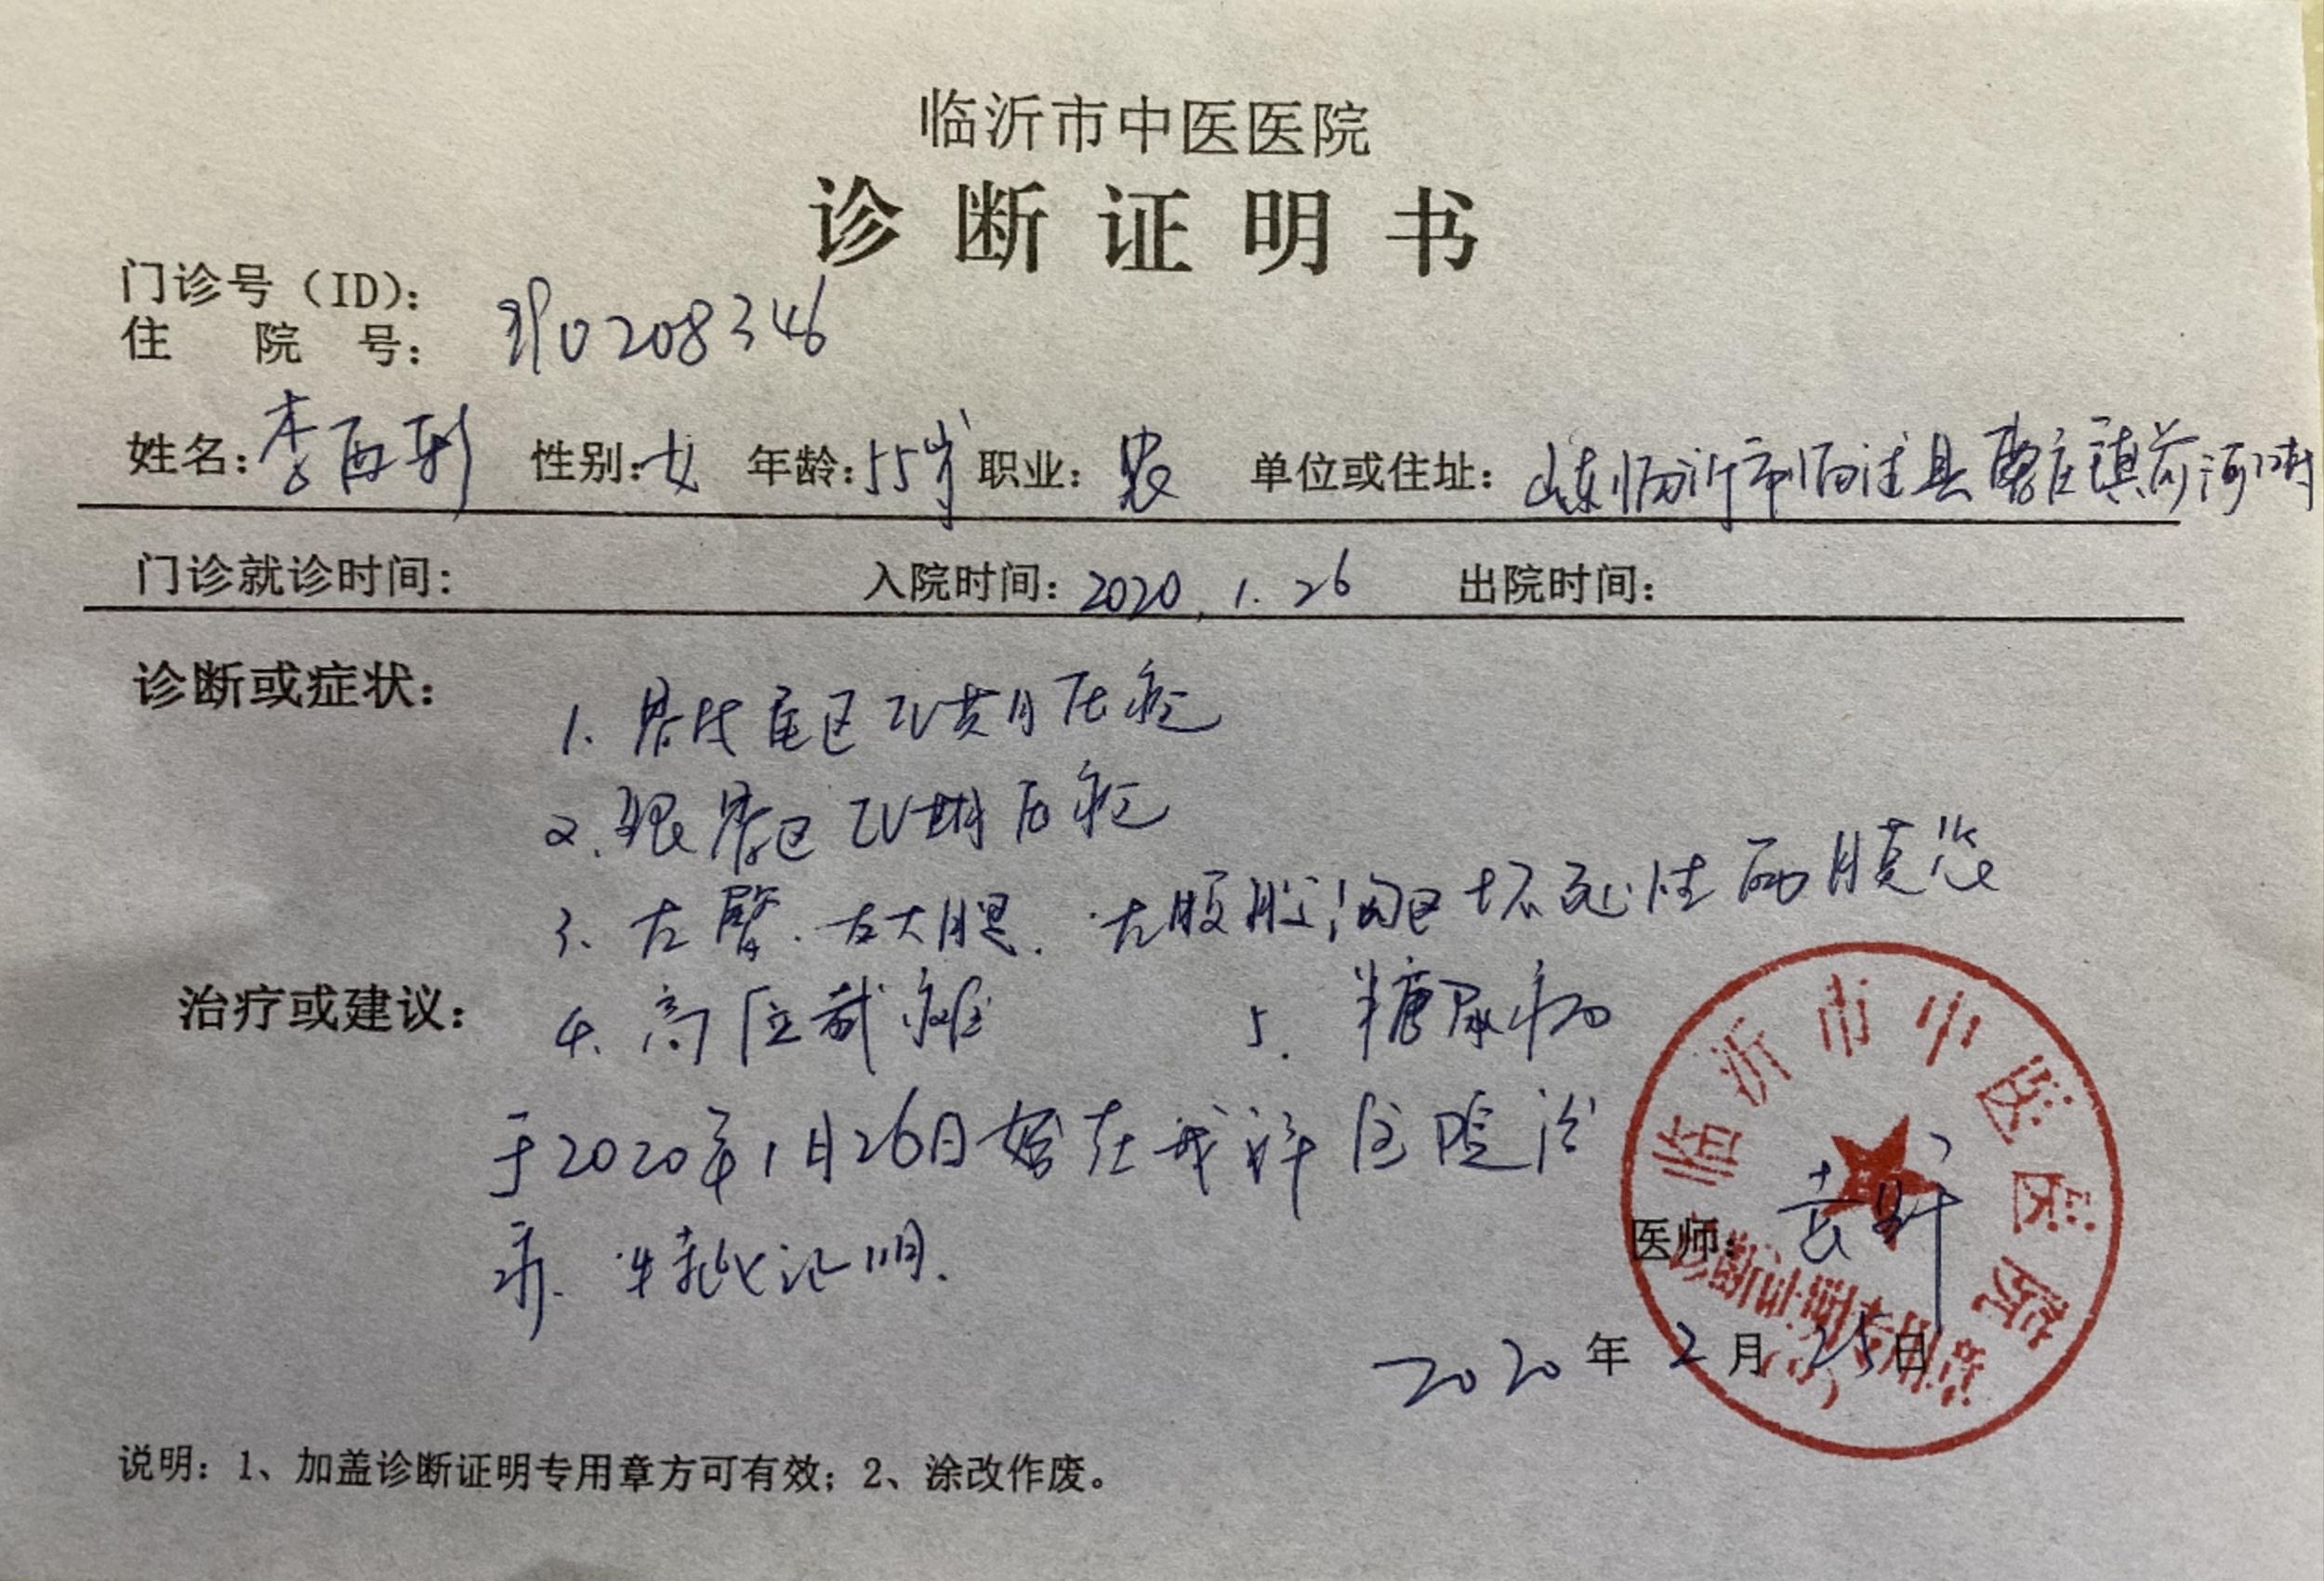 临沂市中医医院
诊断证明书
门诊号（ID）：
住 院 号： 0208346
姓名：李西彩 性别：女 年龄：55岁 职业：农 单位或住址：山东临沂市临沭县曹庄镇前河口村
门诊就诊时间： 入院时间：2020.1.26 出院时间：
诊断或症状：
1. 骶尾区IV期压疮
2. 髂区IV期压疮
3. 左臀、左大腿、左腹股沟区坏死性筋膜炎
治疗或建议：
4. 高位截瘫 5. 糖尿病
于2020年1月26日始在我科住院治
疗. 特此证明.
医师：
2020年2月25日
临沂市中医医院
诊断证明专用章
说明：1、加盖诊断证明专用章方可有效；2、涂改作废。